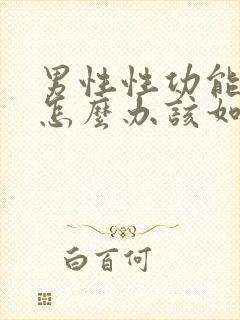 男性性功能
怎麼办該如
白百何